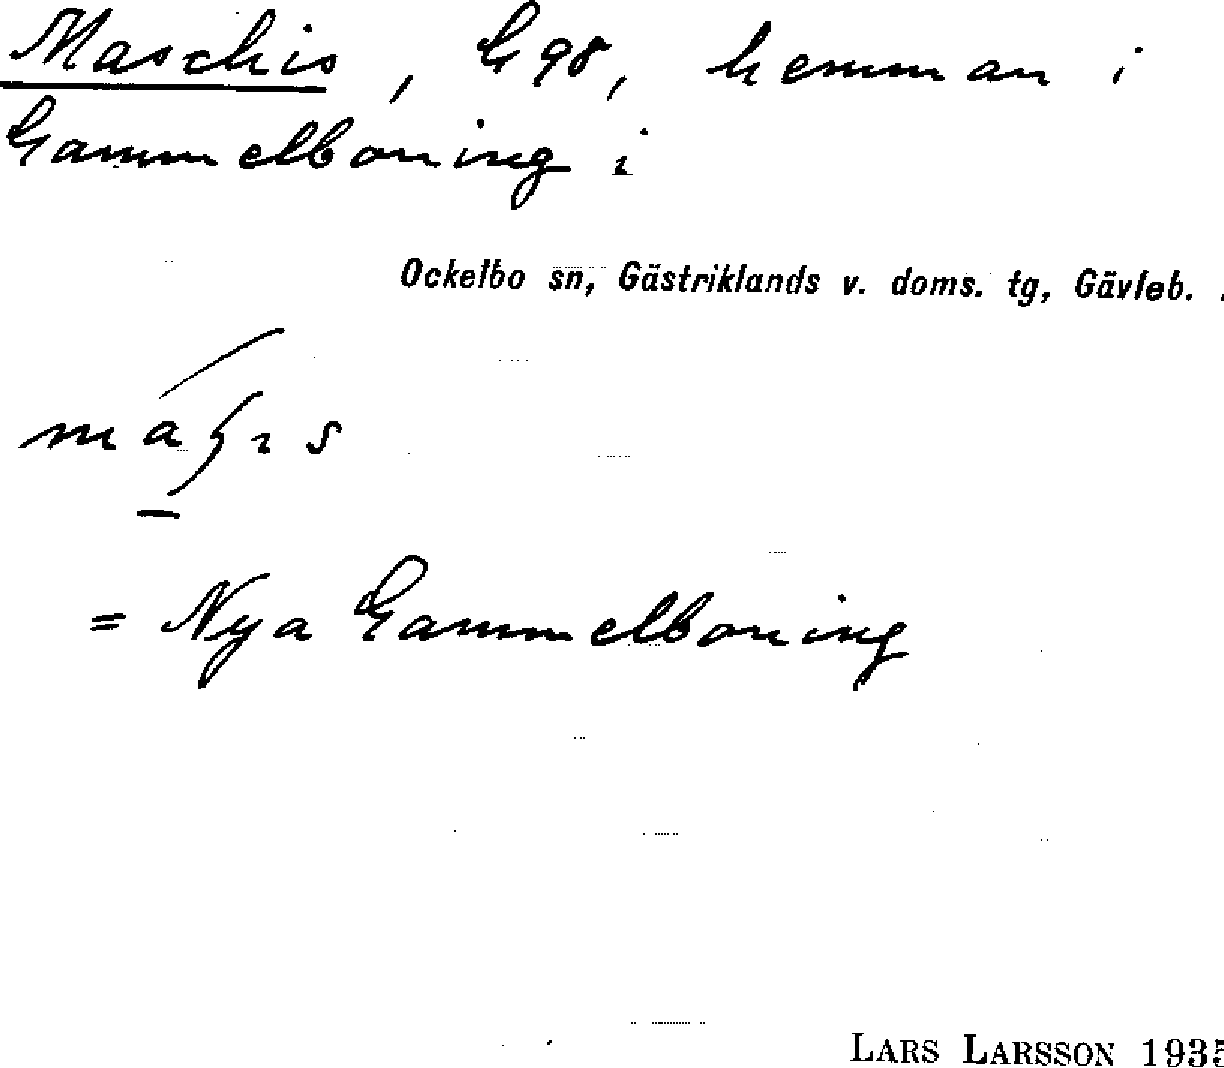 Maschis, G 98, hemman i
Gammelboning i
Ockelbo sn, Gästriklands v. doms. tg, Gävleb.
= Nya Gammelboning
LARS LARSSON 1935